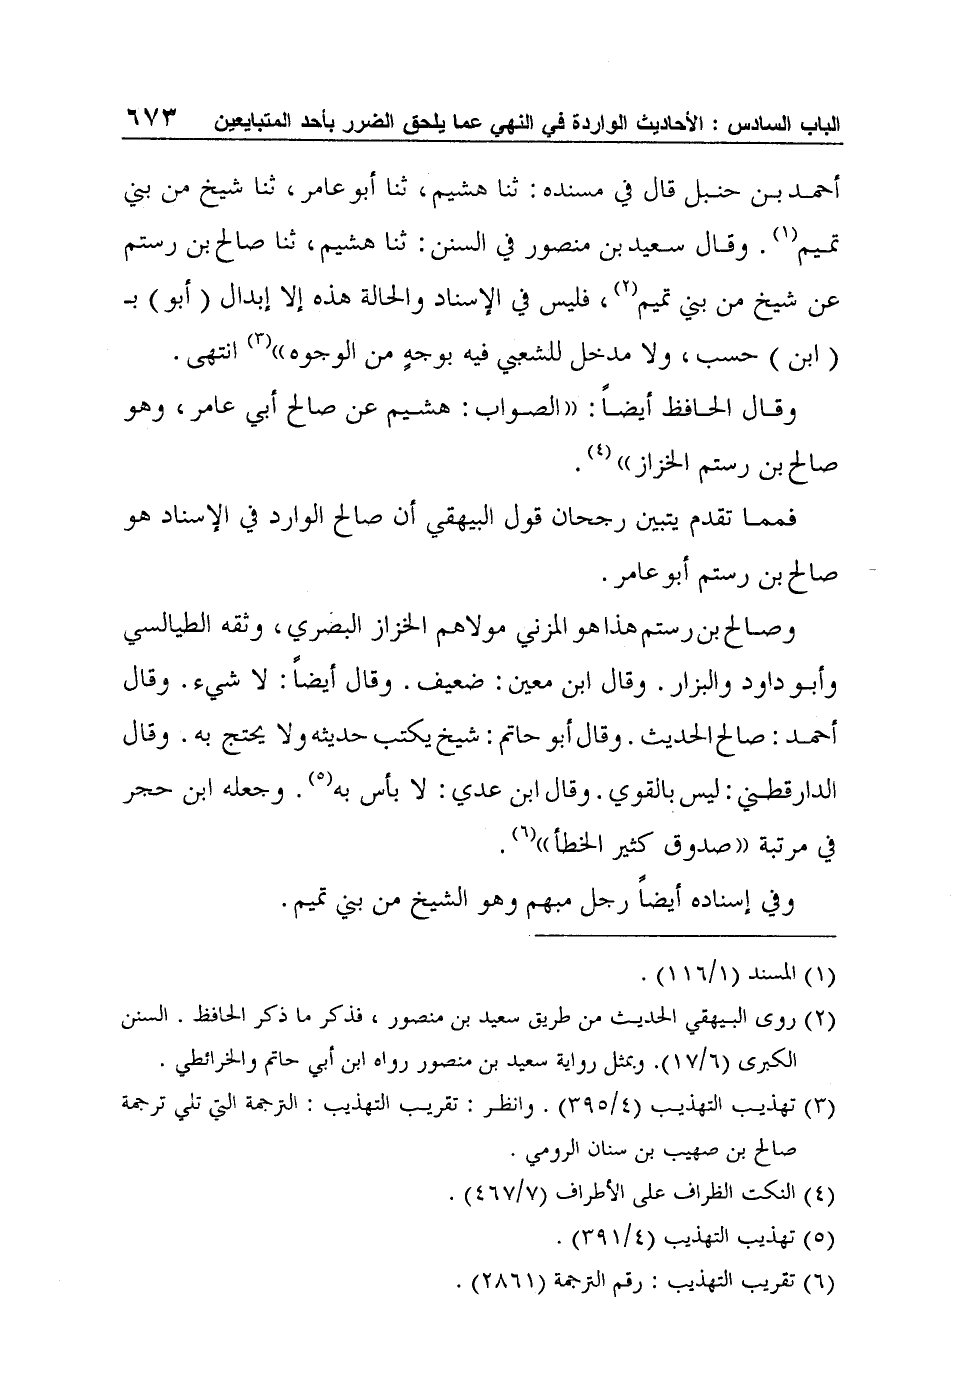 الباب السادس : الأحاديث الواردة في النهي عما يلحق الضرر بأحد المتبايعين ٦٧٣
أحمد بن حنبل قال في مسنده : ثنا هشيم، ثنا أبو عامر ، ثنا شيخ من بني
تميم(١) . وقال سعيد بن منصور في السنن : ثنا هشيم، ثنا صالح بن رستم
عن شيخ من بني تميم(٢)، فليس في الإسناد والحالة هذه إلا إبدال ( أبو ) بـ
( ابن ) حسب ، ولا مدخل للشعبي فيه بوجهٍ من الوجوه»(٣) انتهى .
وقال الحافظ أيضاً : «الصواب : هشيم عن صالح أبي عامر ، وهو
صالح بن رستم الخزاز»(٤) .
فمما تقدم يتبين رجحان قول البيهقي أن صالح الوارد في الإسناد هو
صالح بن رستم أبو عامر .
وصالح بن رستم هذا هو المزني مولاهم الخزاز البصري، وثقه الطيالسي
وأبو داود والبزار . وقال ابن معين : ضعيف . وقال أيضاً : لا شيء . وقال
أحمد : صالح الحديث . وقال أبو حاتم : شيخ يكتب حديثه ولا يحتج به . وقال
الدارقطني : ليس بالقوي . وقال ابن عدي : لا بأس به(٥) . وجعله ابن حجر
في مرتبة «صدوق كثير الخطأ»(٦) .
وفي إسناده أيضاً رجل مبهم وهو الشيخ من بني تميم .
(١) المسند (١١٦/١) .
(٢) روى البيهقي الحديث من طريق سعيد بن منصور ، فذكر ما ذكر الحافظ . السنن
الكبرى (١٧/٦). وبمثل رواية سعيد بن منصور رواه ابن أبي حاتم والخرائطي .
(٣) تهذيب التهذيب (٣٩٥/٤) . وانظر : تقريب التهذيب : الترجمة التي تلي ترجمة
صالح بن صهيب بن سنان الرومي .
(٤) النكت الظراف على الأطراف (٤٦٧/٧) .
(٥) تهذيب التهذيب (٣٩١/٤) .
(٦) تقريب التهذيب : رقم الترجمة (٢٨٦١) .